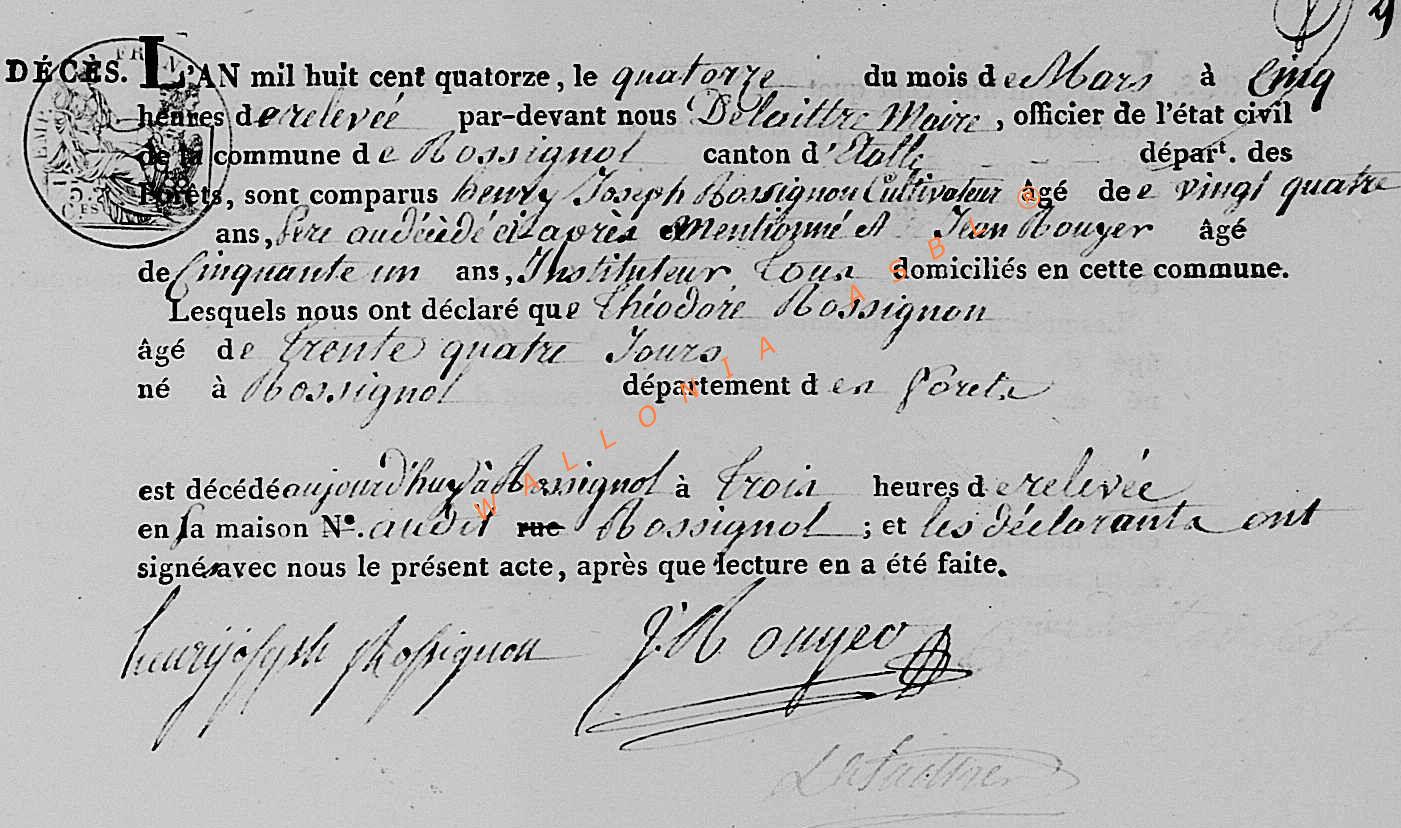 DÉCÈS. L'AN mil huit cent quatorze, le quatorze du mois de Mars à Cinq
heures de relevée par-devant nous Delaittre Maire, officier de l'état civil
de la commune de Rossignol canton d'Etalle dépar<sup>t</sup>. des
Forêts, sont comparus henry Joseph Rossignon Cultivateur âgé de e vingt quatre
ans, Pere au décédé ci après Mentionné et Jean Rouyer âgé
de Cinquante un ans, Instituteur tous domiciliés en cette commune.
Lesquels nous ont déclaré que théodore Rossignon
âgé de trente quatre Jours
né à Rossignol département den forets
est décédé aujourd'huy à Rossignol à trois heures de relevée
en sa maison N°. audit rue Rossignol ; et les déclarants ont
signés avec nous le présent acte, après que lecture en a été faite.
henry joseph Rossignon J. Rouyer
Delaittre
WALLONIA ASBL @